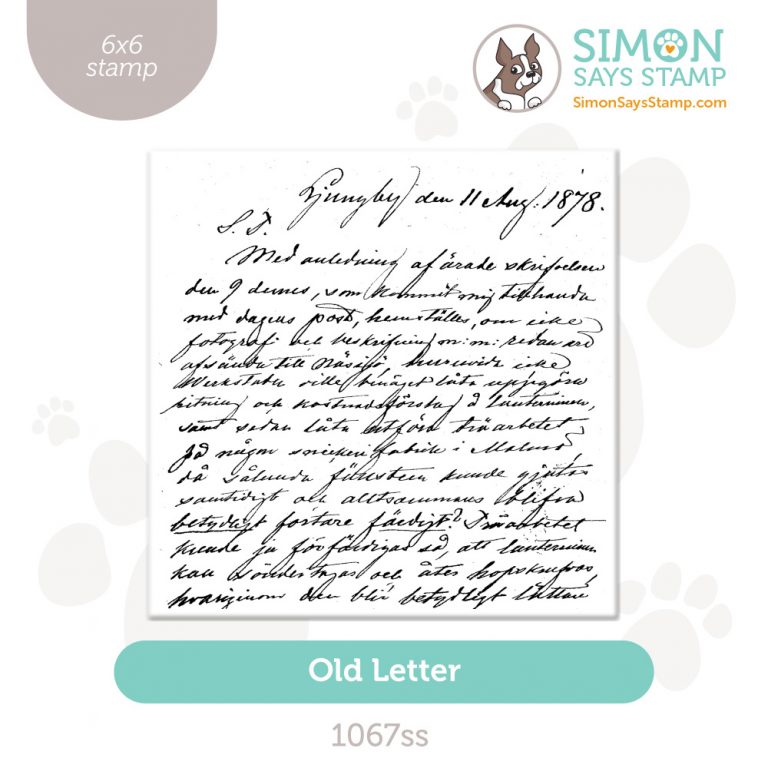 6x6
stamp
SIMON
SAYS STAMP
SimonSaysStamp.com
Ljungby den 11 Aug. 1878.
S. T.
Med anledning af ärade skrifvelsen
den 9 dennes, som kommit mig tillhanda
med dagens post, hemställes, om icke
fotografi och beskrifning m: m: redan äro
afsända till Nässjö, huruvida icke
Werkstaden ville benäget låta uppgöra
ritning och kostnadsförslag å lanterninen,
samt sedan låta utföra träarbetet
på någon snickerifabrik i Malmö,
då sålunda fönstren kunde gjutas
samtidigt och alltsammans blifva
betydligt förtare färdigt? Träarbetet
kunde ju förfärdigas så, att lanterninen
kan söndertagas och åter hopskrufvas,
hvarigenom den blir betydligt lättare
Old Letter
1067ss